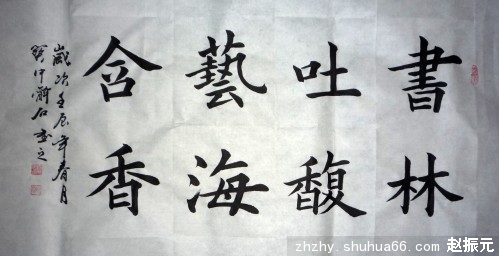 書林
吐馥
藝海
含香
歲次壬辰年春月
石書之
zhzhy.shuhua66.com 赵振元